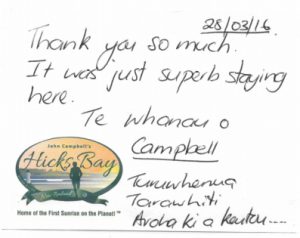 28/03/16
Thank you so much.
It was just superb staying
here.
Te whanau o
Campbell
John Campbell's
Hicks Bay
Home of the First Sunrise on the Planet! ™
Turuwhenua
Tarawhiti
Aroha ki a koutou....